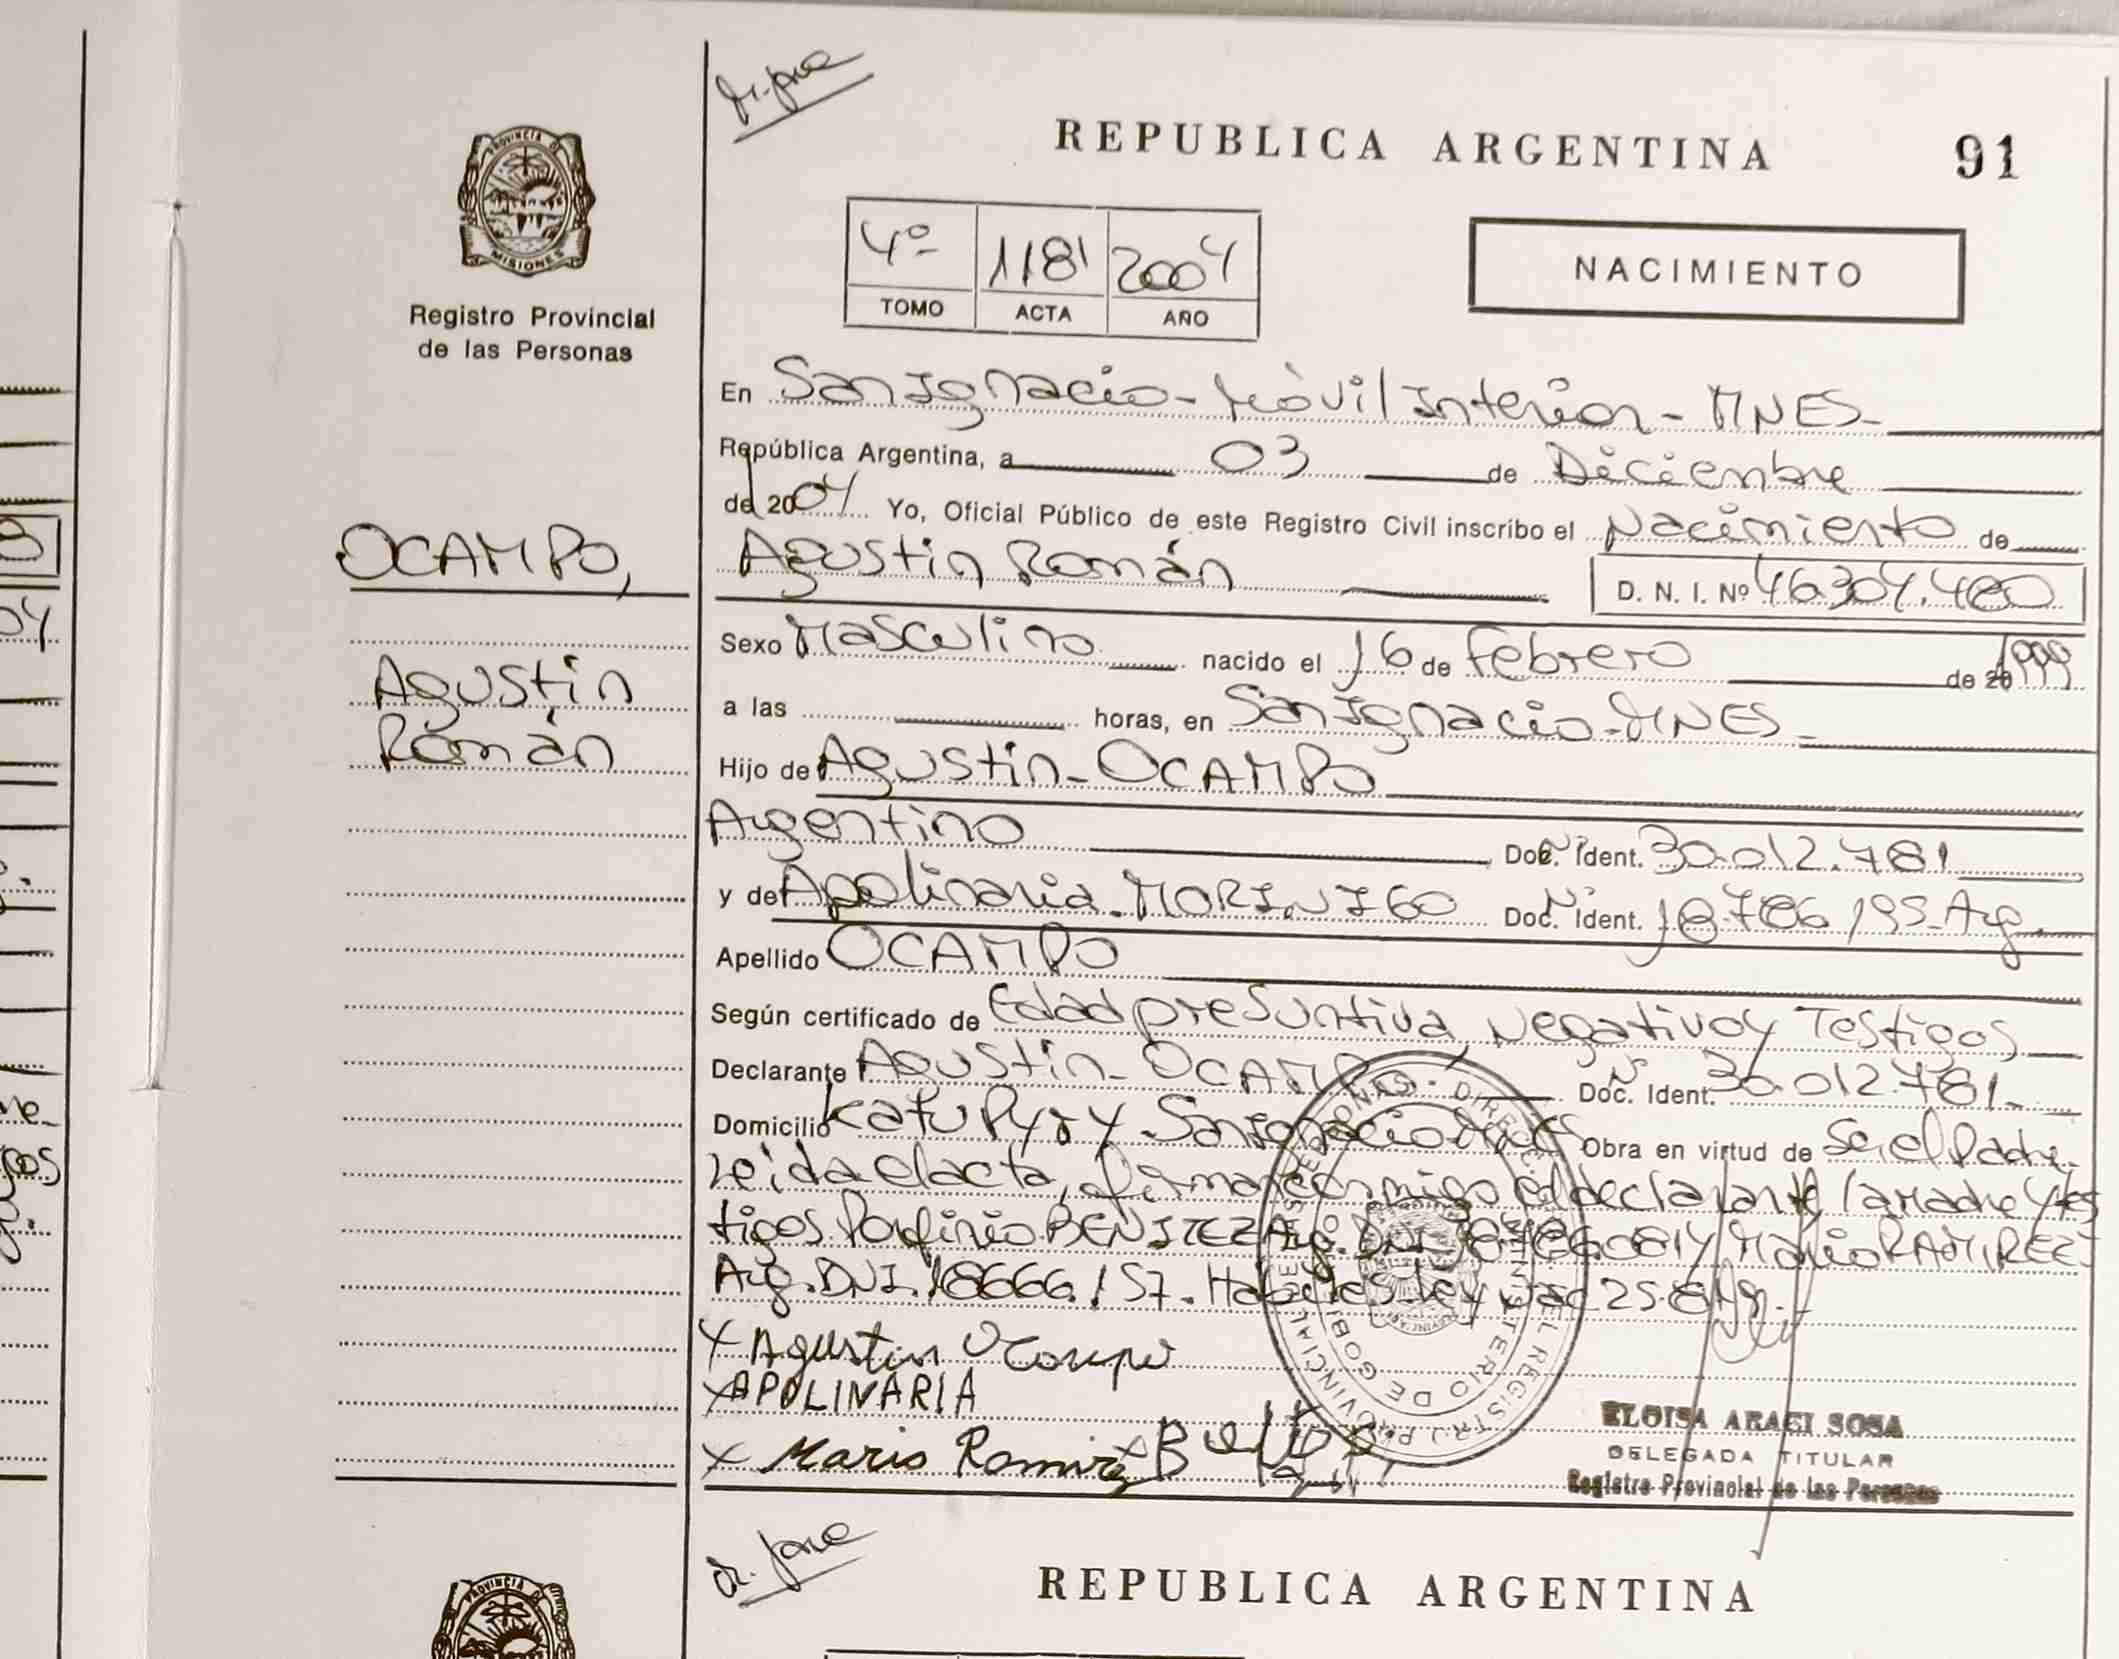 REPUBLICA ARGENTINA
91
PROVINCIA DE
MISIONES
Registro Provincial
de las Personas
4º 1181 2004
TOMO ACTA AÑO
NACIMIENTO
En San Ignacio - Móvil Interior - MNES -
República Argentina, a 03 de Diciembre
del 2004 Yo, Oficial Público de este Registro Civil inscribo el Nacimiento de
OCAMPO, Agustin Román D. N. I. Nº 46.304.480
Sexo Masculino nacido el 16 de Febrero de 20 1999
Agustin
Román
a las horas, en San Ignacio - MNES -
Hijo de Agustin - OCAMPO
Argentino Doc. Ident. 30.012.781
y de Apolinaria. MORINIGO Doc. Ident. 18.786.193 - Arg.
Apellido OCAMPO
Según certificado de Edad presuntiva, Negativo y Testigos
Declarante Agustin - OCAMPO Doc. Ident. 30.012.781 -
Domicilio Katu Pyry - San Ignacio Obra en virtud de Ser el Padre.
Leida el acta, firman conmigo el declarante la madre y tes
tigos Porfirio BENITEZ Arg. DNI y Mario RAMIREZ
Arg. DNI. 18666.157. Habiles. Ley Nac 25.819. -
x Agustin Ocampo
x APOLINARIA
x Mario Ramirez
ELOISA ARACI SOSA
DELEGADA TITULAR
Registro Provincial de las Personas
REPUBLICA ARGENTINA
PROVINCIA